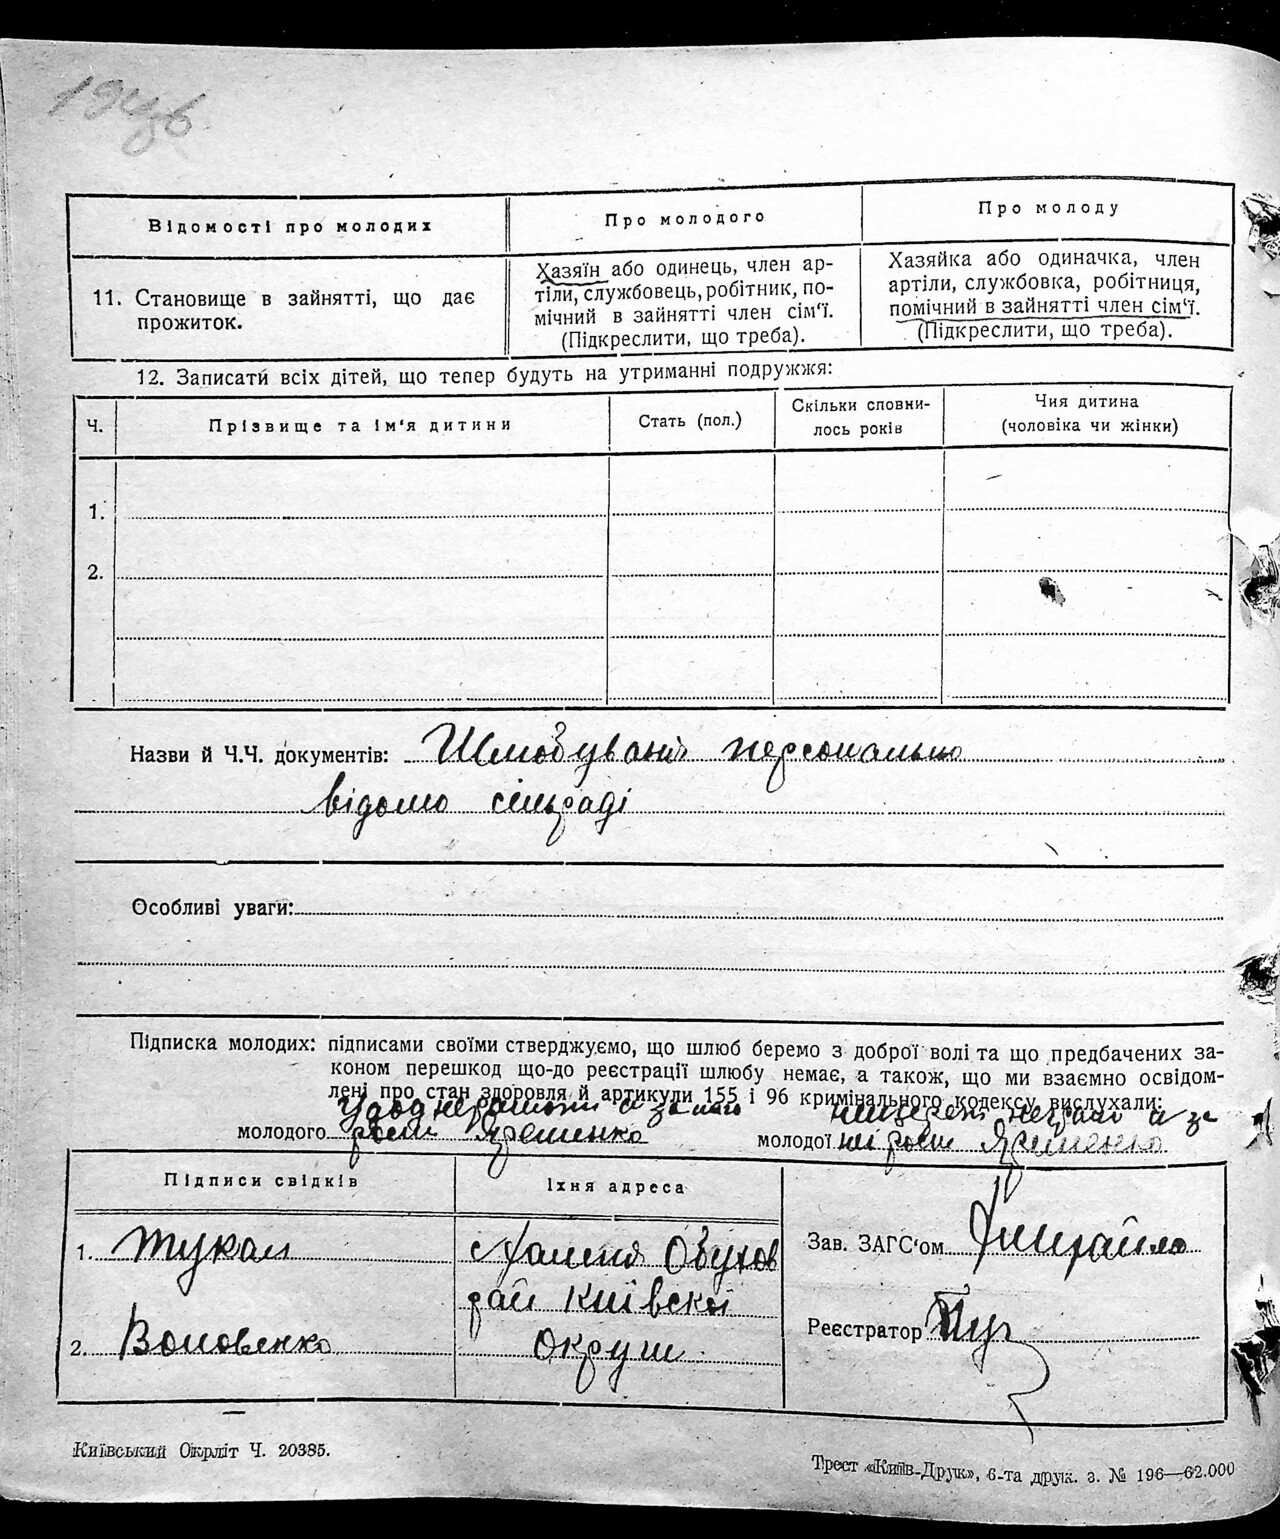 Відомості про молодих
Про молодого
Про молоду
11. Становище в зайнятті, що дає
прожиток.
Хазяїн або одинець, член ар-
тіли, службовець, робітник, по-
мічний в зайнятті член сім'ї.
(Підкреслити, що треба).
Хазяйка або одиначка, член
артіли, службовка, робітниця,
помічний в зайнятті член сім'ї.
(Підкреслити, що треба).
12. Записати всіх дітей, що тепер будуть на утриманні подружжя:
Ч.
Прізвище та ім'я дитини
Стать (пол.)
Скільки сповни-
лось років
Чия дитина
(чоловіка чи жінки)
1.
2.
Назви й Ч.Ч. документів: Шлюбувані персонально
відомо сільраді
Особливі уваги:
Підписка молодих: підписами своїми стверджуємо, що шлюб беремо з доброї волі та що предбачених за-
коном перешкод що-до реєстрації шлюбу немає, а також, що ми взаємно освідом-
лені про стан здоровля й артикули 155 і 96 кримінального кодексу вислухали:
молодого Яременко
молодої Яременко
Підписи свідків
Їхня адреса
1.
Обухов
рай Київскої
2. Воловенко
Округи
Зав. ЗАГС'ом
Реєстратор
Київський Окрліт Ч. 20385.
Трест «Київ-Друк», 6-та друк. з. № 196—62.000